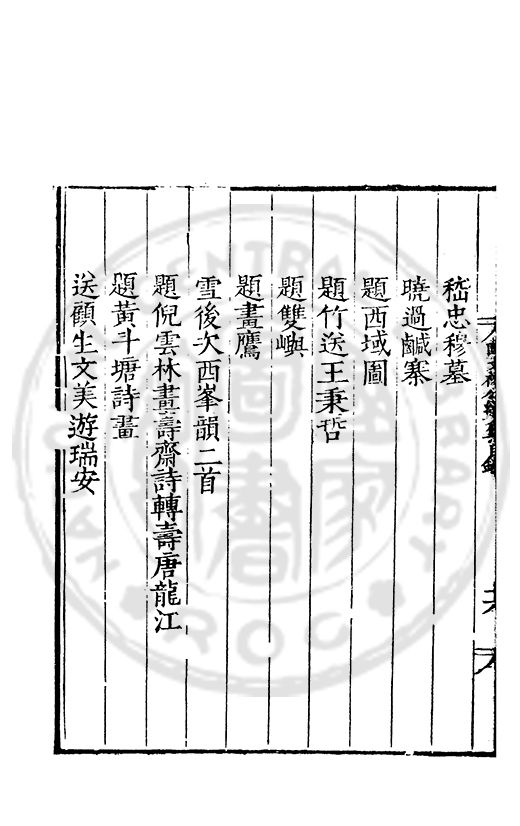 嵇忠穆墓
曉過鹹寨
題西域圖
題竹送王秉哲
題雙嶼
題畫鷹
雪後次西峯韻二首
題倪雲林畫壽齋詩轉壽唐龍江
題黃斗塘詩畫
送顧生文美遊瑞安
NATIONAL CENTRAL LIBRARY
ROC
國家圖書館